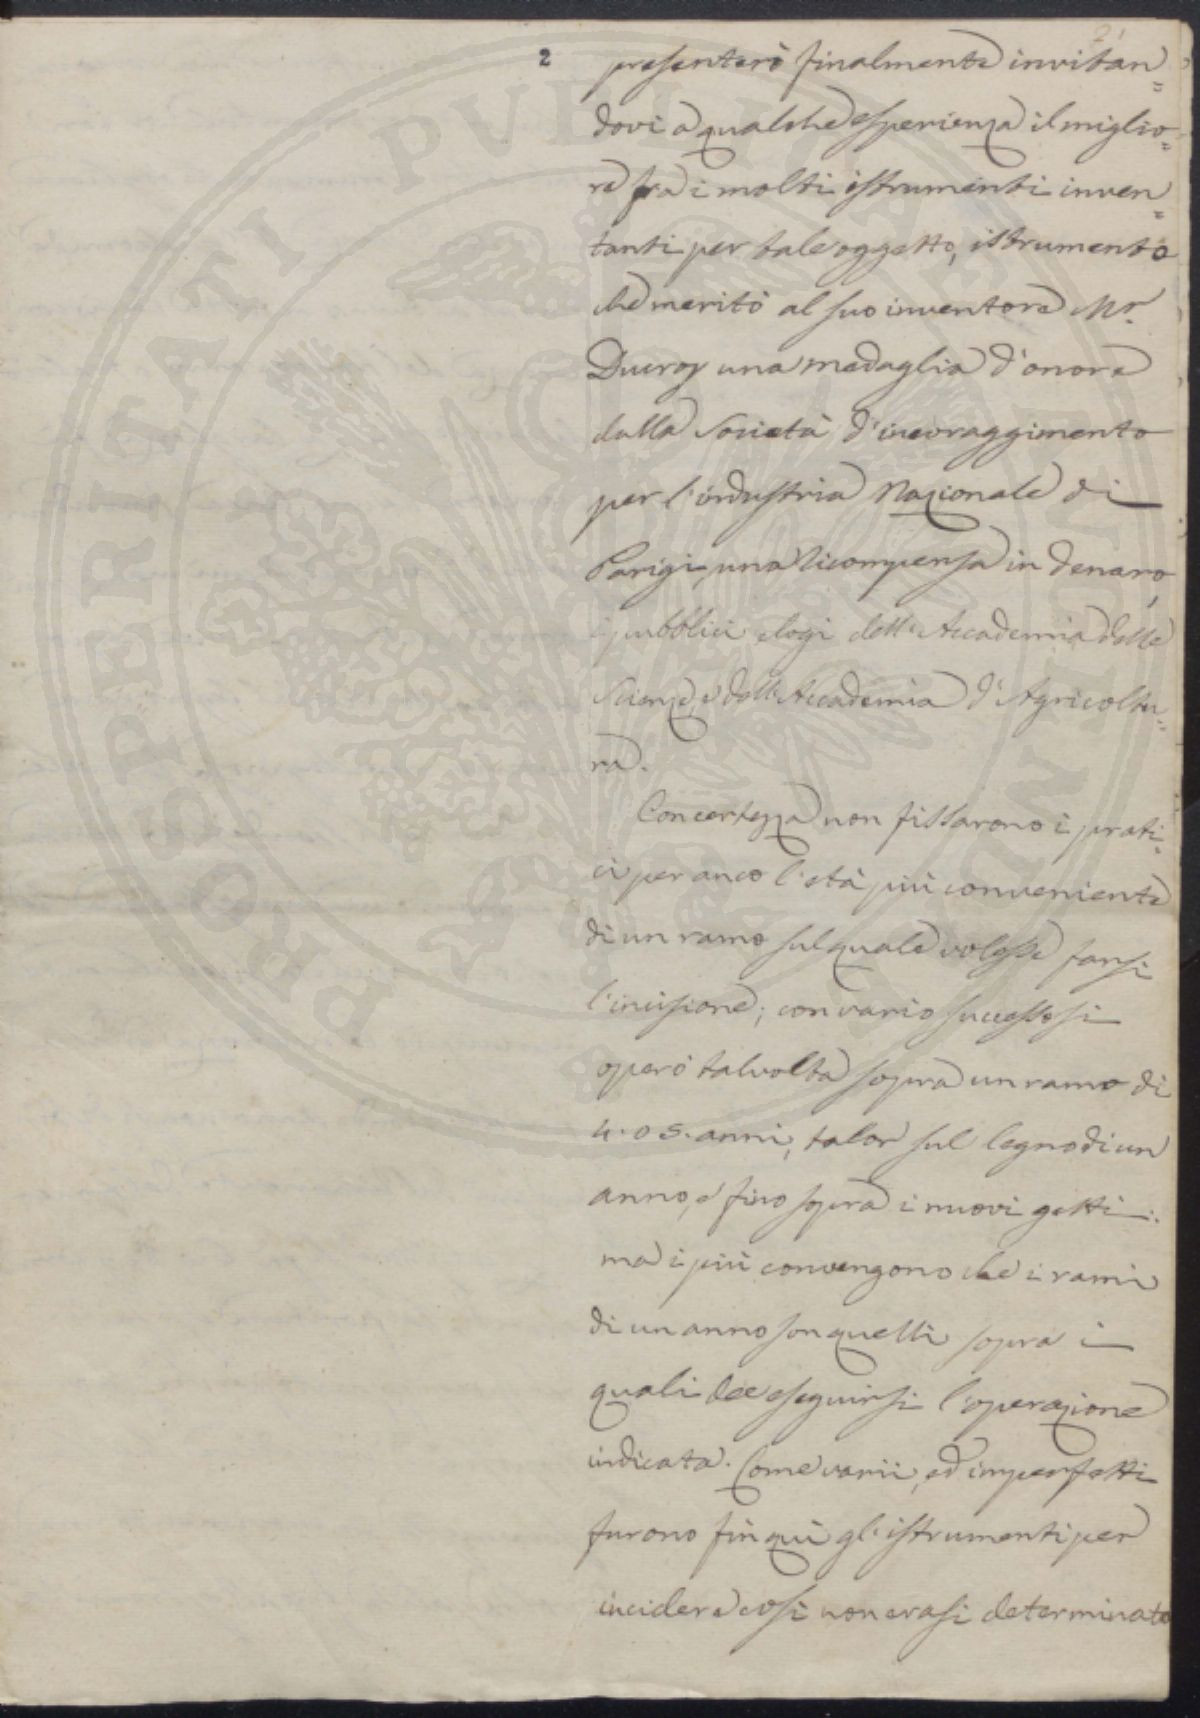 2
presenterò finalmente invitan=
dovi a qualche esperienza il miglio=
re fra i molti istrumenti inven=
tanti per tale oggetto, istrumento
che meritò al suo inventore Mr.
una medaglia d'onore
dalla Società d'incoraggimento
per l'industria Nazionale di
Parigi, una ricompensa in denaro,
i pubblici elogi dell'Accademia delle
Scienze e dell'Accademia d'Agricoltu=
ra.
Con certezza non fissarono i prati=
ci per anco l'età più conveniente
di un ramo sul quale volesse farsi
l'incisione; con vario successo si
operò talvolta sopra un ramo di
4. o 5. anni, talor sul legno di un
anno, e fino sopra i nuovi getti:
ma i più convengono che i rami
di un anno son quelli sopra i
quali dee eseguirsi l'operazione
indicata. Come varii, ed imperfetti
furono fin quì gl'istrumenti per
incidere così non erasi determinato
PROSPERITATI PVBLICAE